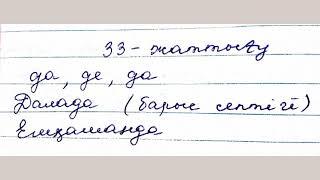 33-жаттығу
да, де, да
Далада (барыс септігі)
Ешқашанда